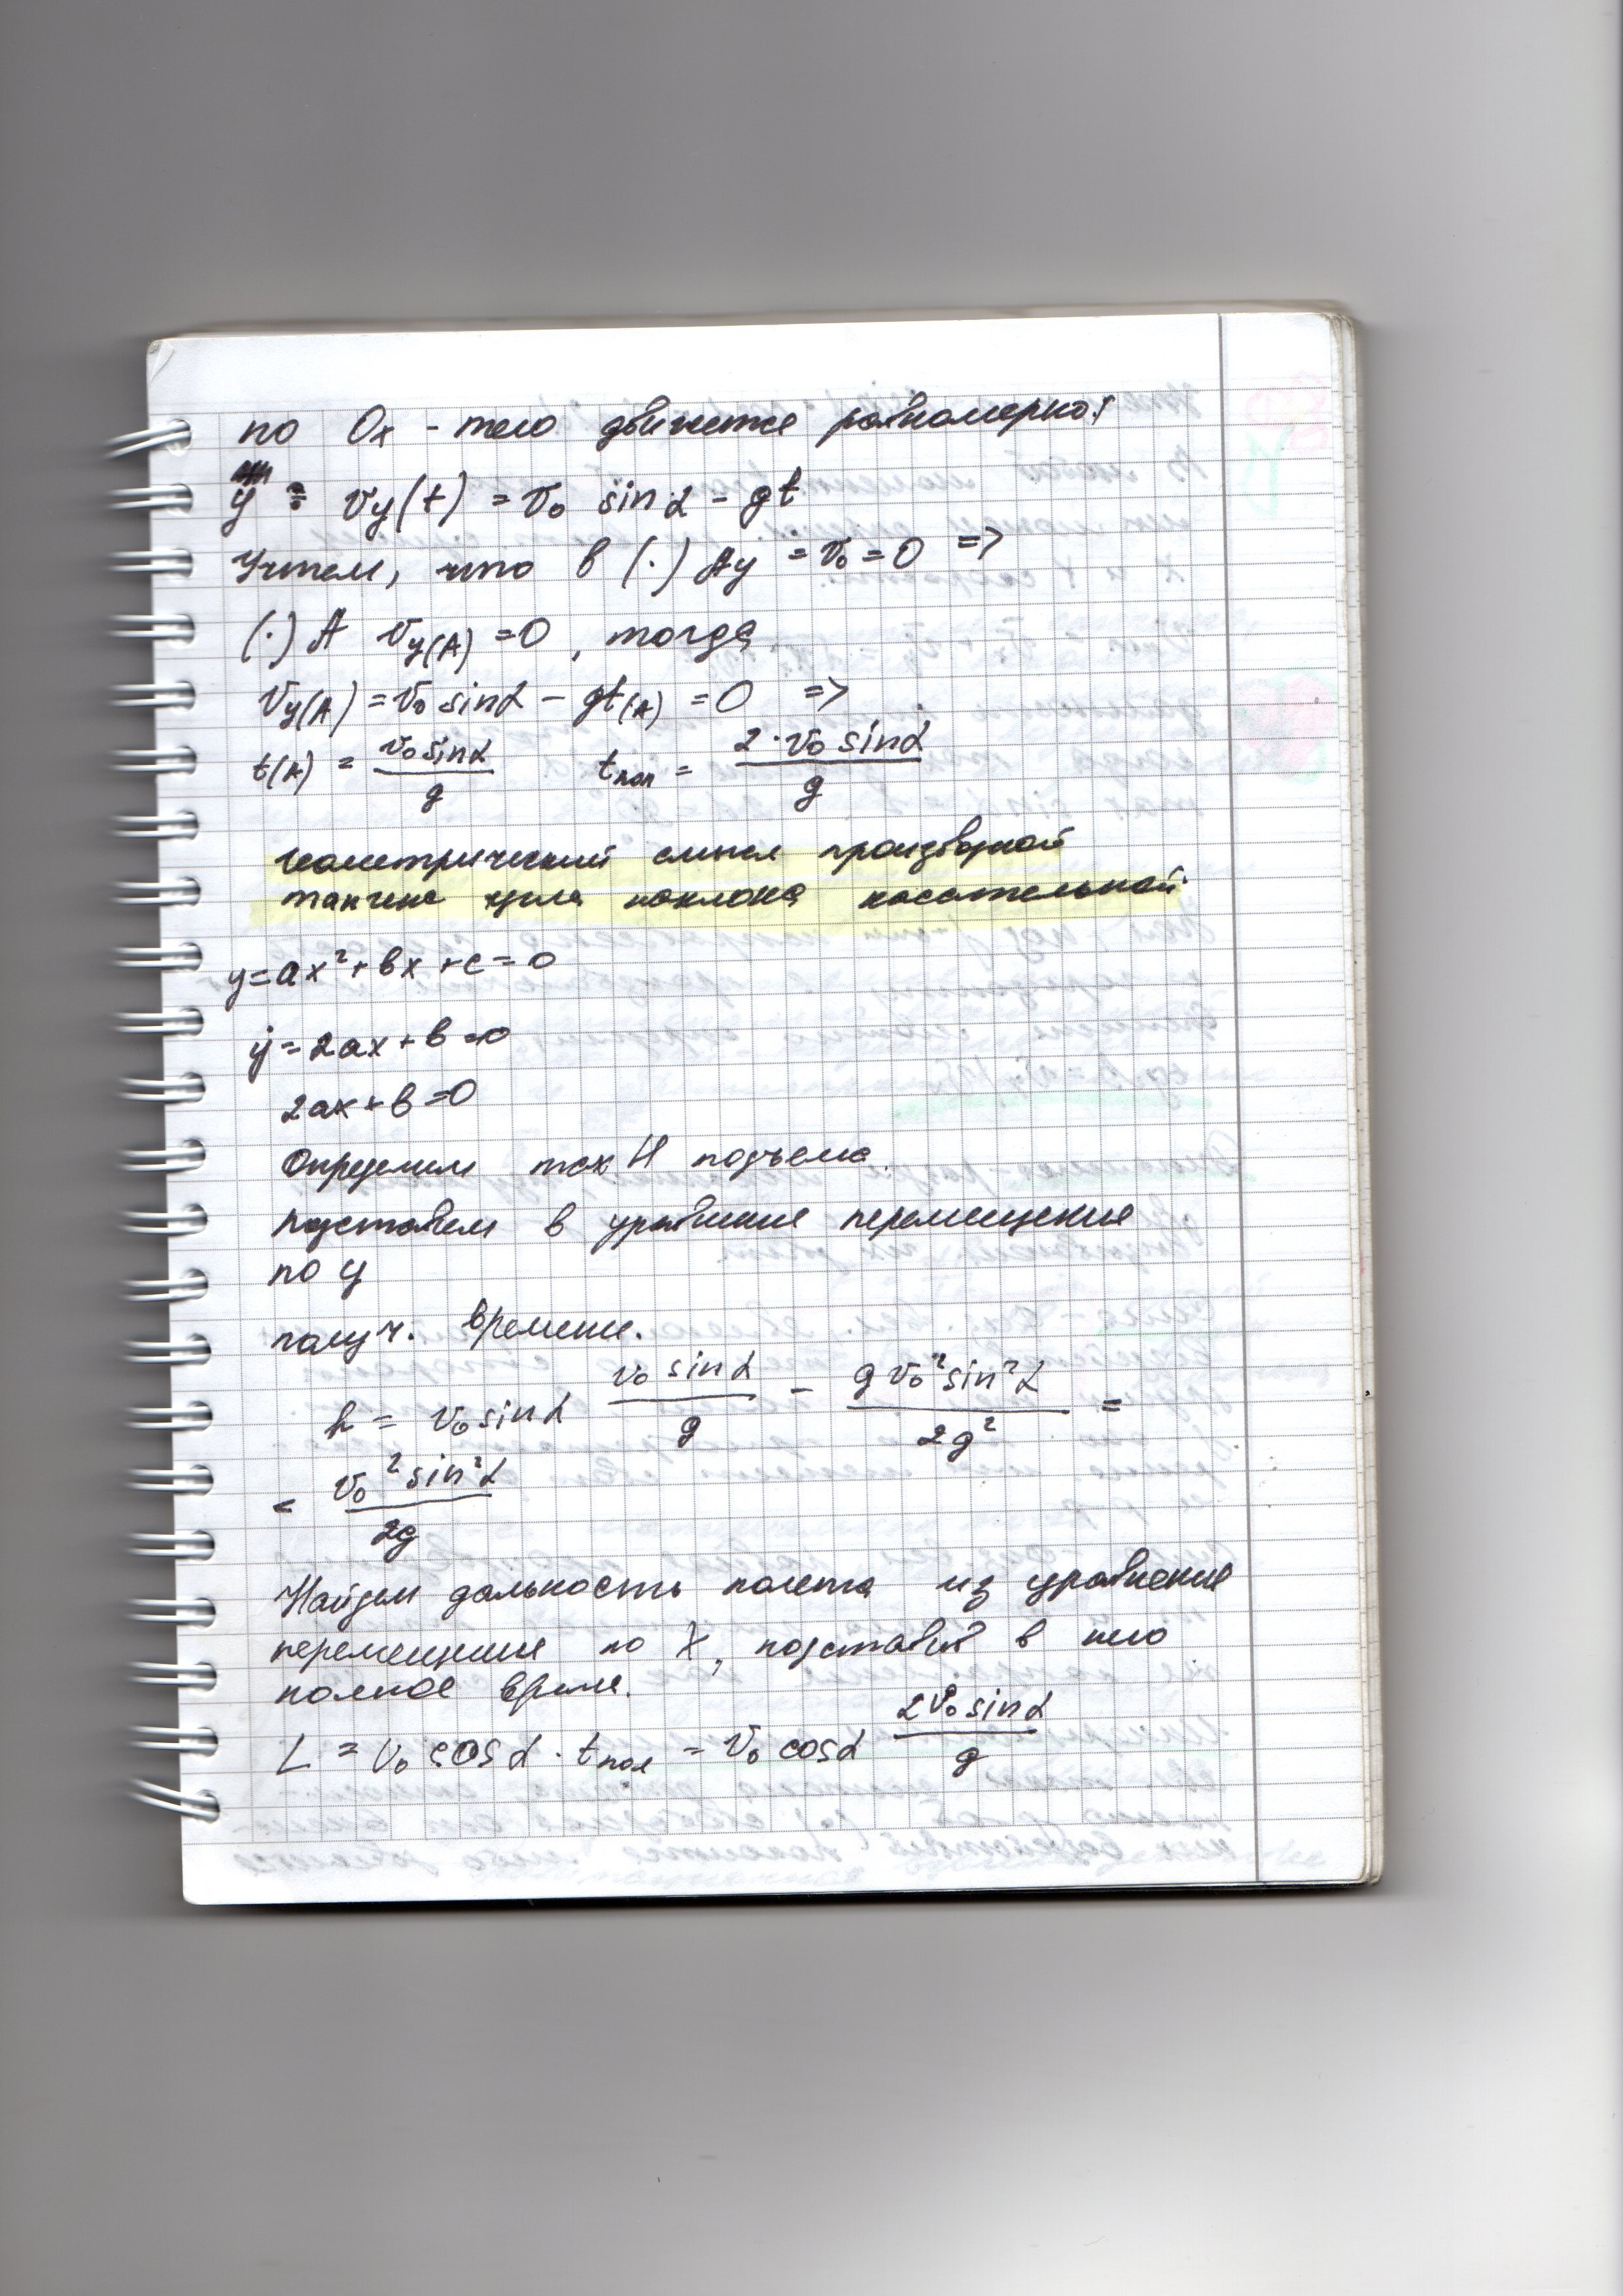 по Ox - тело движется равномерно:
ẏ = vy(t) = v₀ sin α - gt
Учтем, что в (·) Ay = v₀ = 0 =>
(·) A vy(A) = 0, тогда
vy(A) = v₀ sin α - gt(A) = 0 =>
t(A) = v₀ sin α / g    tпол = 2 · v₀ sin α / g
геометрический смысл производной
тангенс угла наклона касательной
y = ax² + bx + c = 0
ẏ = 2ax + b = 0
2ax + b = 0
Определим max H подъема.
подставим в уравнение перемещения
по y
получ. времени.
h = v₀ sin α v₀ sin α / g - g v₀² sin² α / 2g² =
= v₀² sin² α / 2g
Найдем дальность полета из уравнения
перемещения по X, подставив в него
полное время.
L = v₀ cos α · tпол = v₀ cos α 2v₀ sin α / g